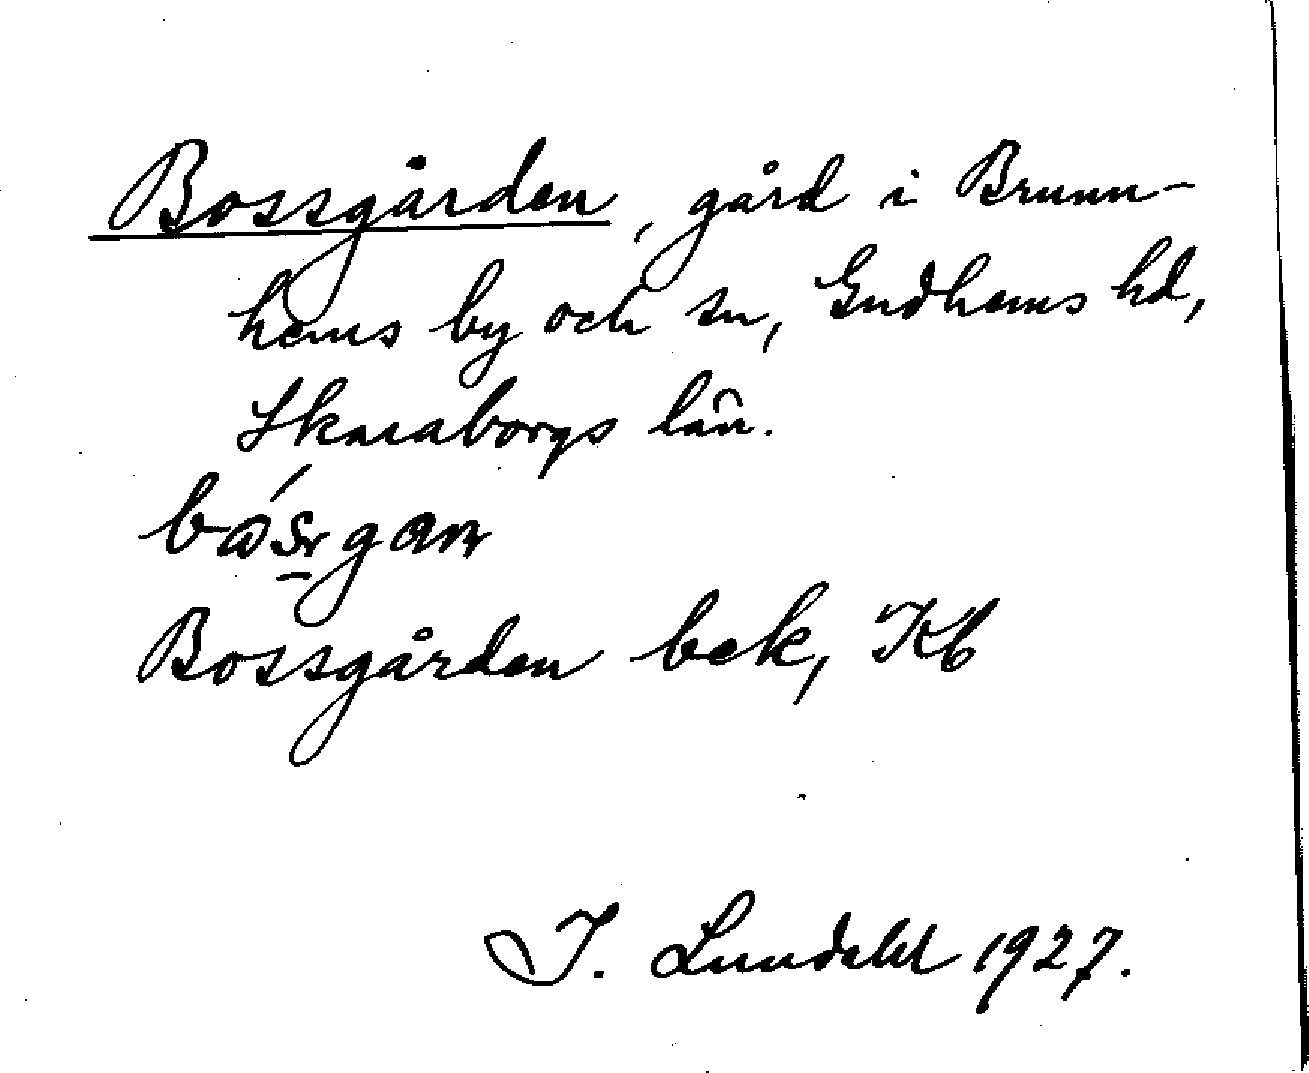 Bossgården, gård i Brunn-
hems by och sn, Gudhems hd,
Skaraborgs län.
Bossgården bek, Kb
J. Lundahl 1927.